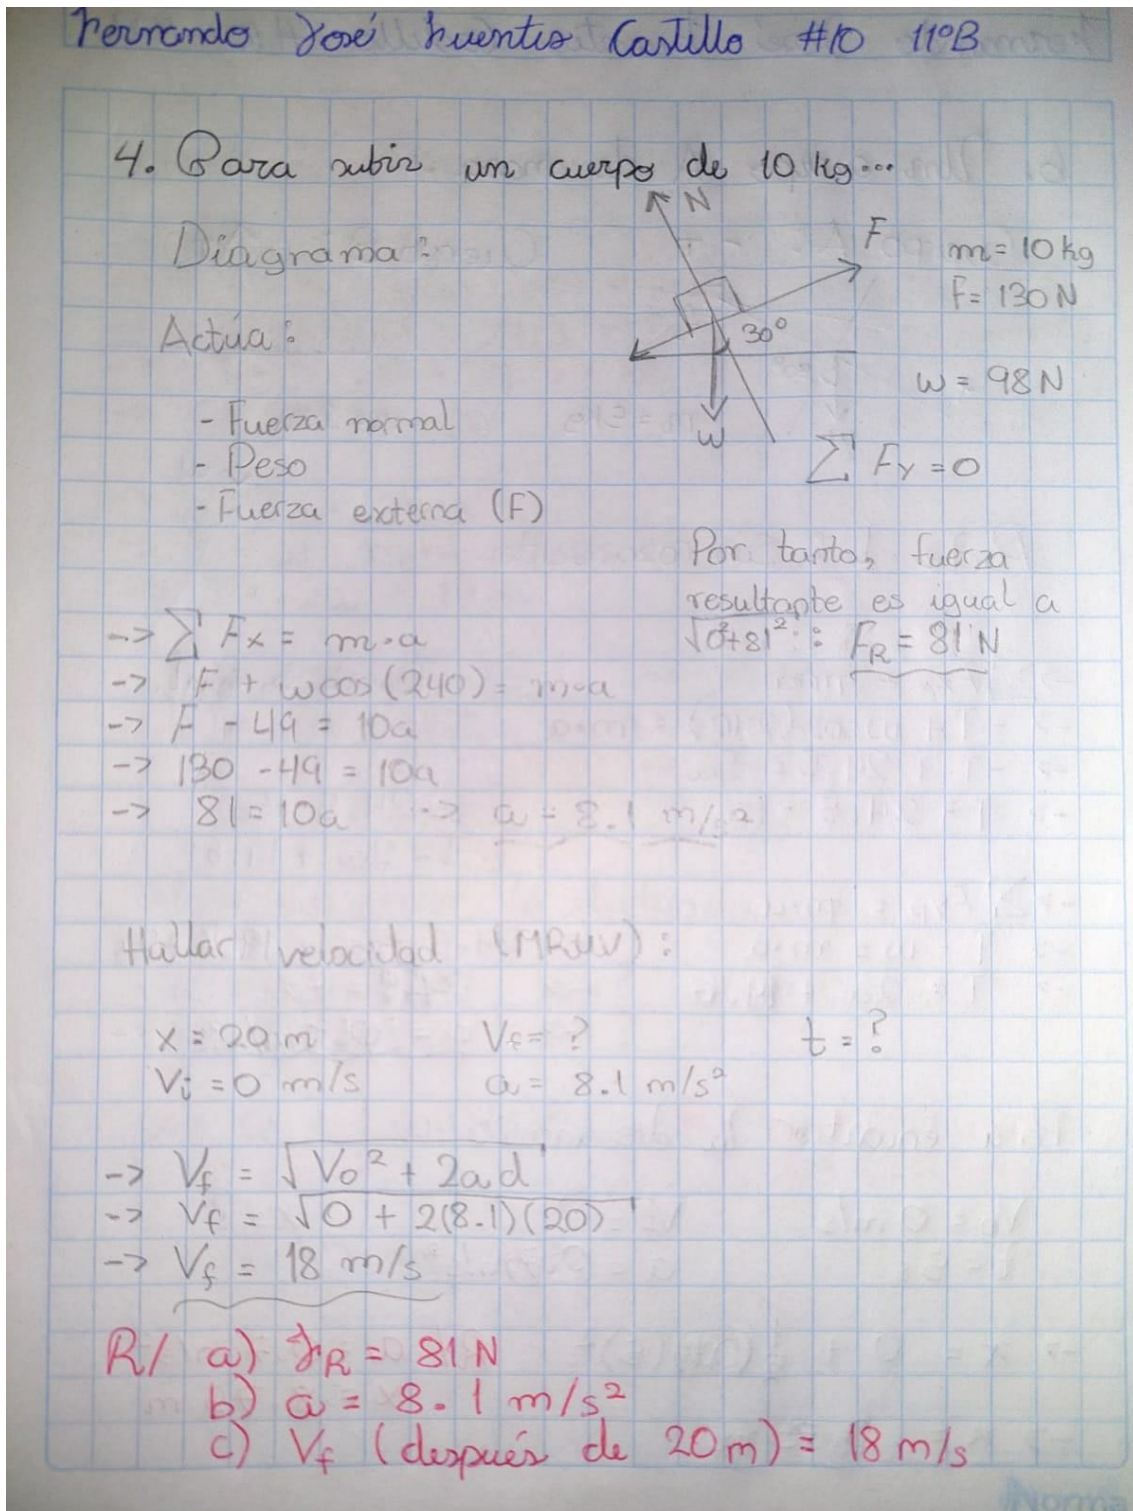 Fernando José Fuentes Castillo #10 11°B
4. Para subir un cuerpo de 10 kg...
N
Diagrama:
F
m = 10 kg
F = 130 N
Actúa:
30°
w = 98 N
- Fuerza normal
w
- Peso
∑ Fy = 0
- Fuerza externa (F)
Por tanto, fuerza
resultante es igual a
√0²+81² : FR = 81 N
-> ∑ Fx = m·a
-> F + w cos(240) = m·a
-> F - 49 = 10a
-> 130 - 49 = 10a
-> 81 = 10a -> a = 8.1 m/s²
Hallar velocidad (MRUV):
x = 20 m Vf = ? t = ?
Vi = 0 m/s a = 8.1 m/s²
-> Vf = √Vo² + 2ad
-> Vf = √0 + 2(8.1)(20)
-> Vf = 18 m/s
R/ a) FR = 81 N
b) a = 8.1 m/s²
c) Vf (después de 20m) = 18 m/s
Norma